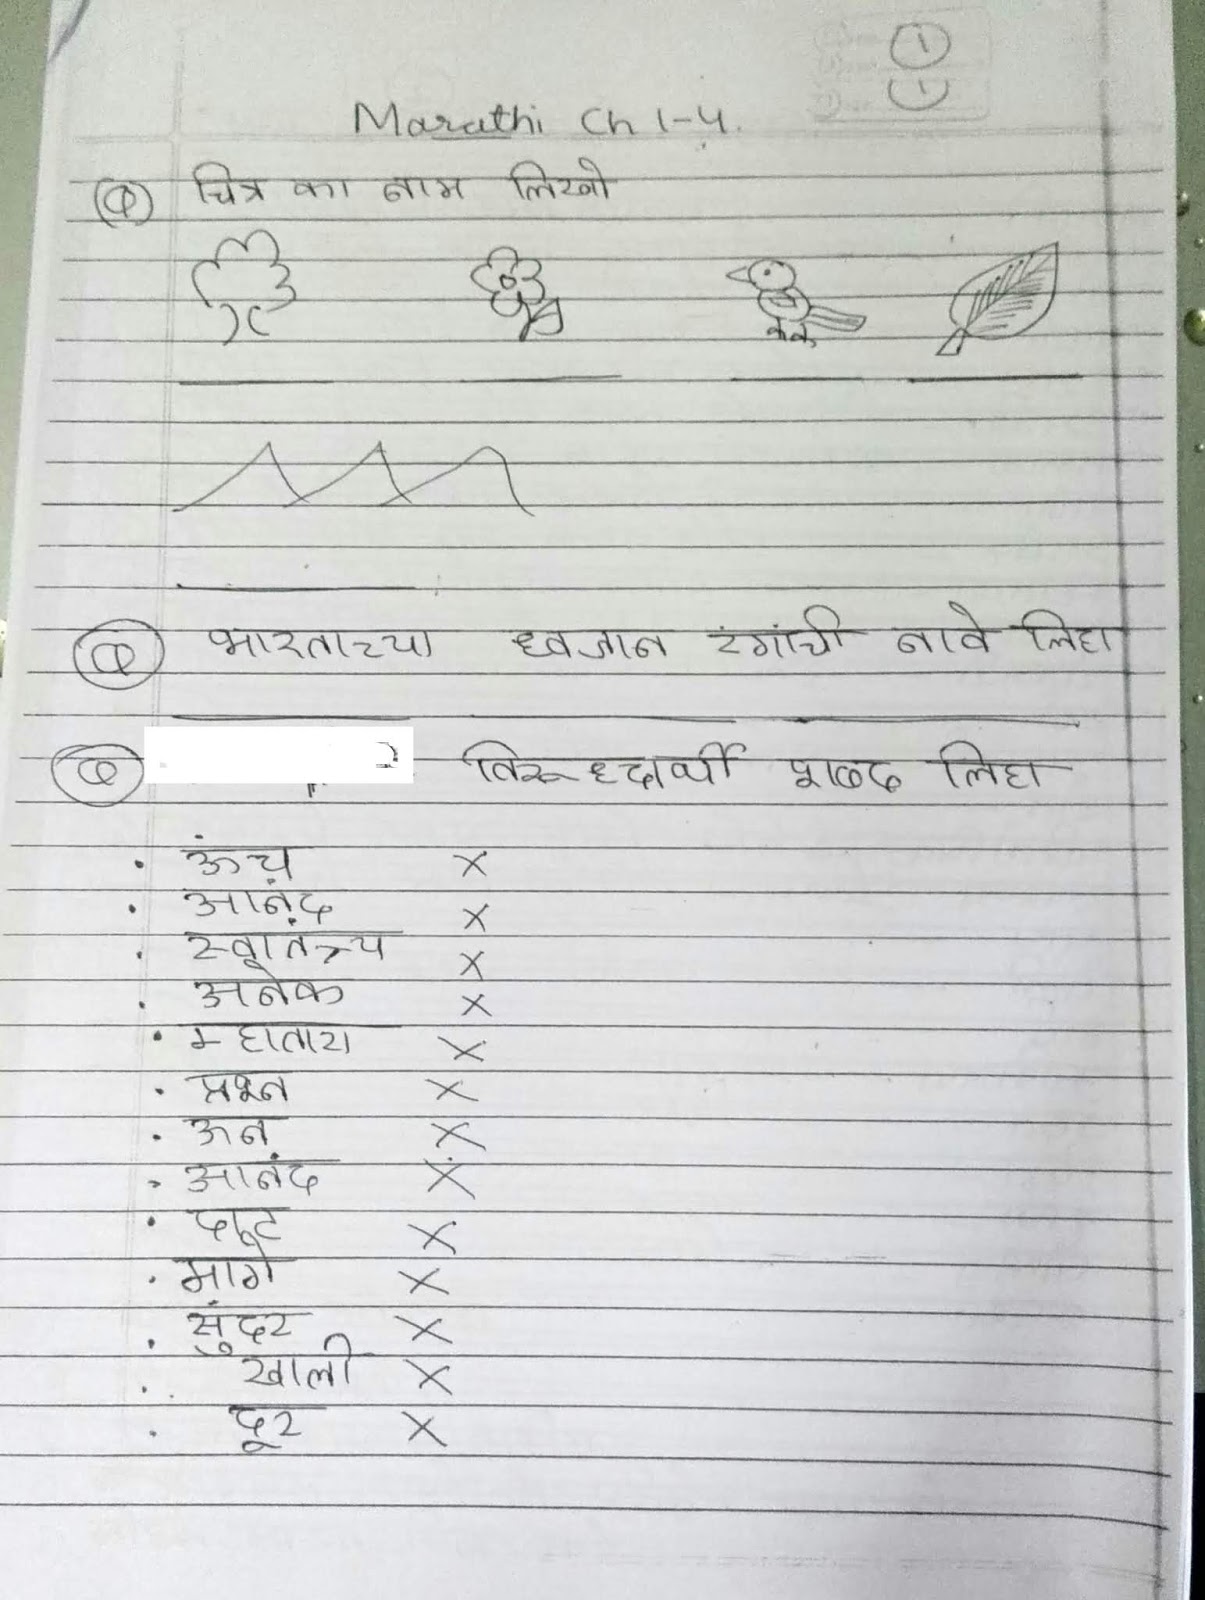 1
1
Marathi Ch 1-4.
Q चित्र का नाम लिखो
Q भारताच्या ध्वजान रंगांची नावे लिहा
Q विरूध्दार्थी शब्द लिहा
• ऊंच X
• आनंद X
• स्वातंत्र्य X
• अनेक X
• म्हातारा X
• प्रश्न X
• ऊन X
• आनंद X
• दाट X
• मागे X
• सुंदर X
• खाली X
• दूर X